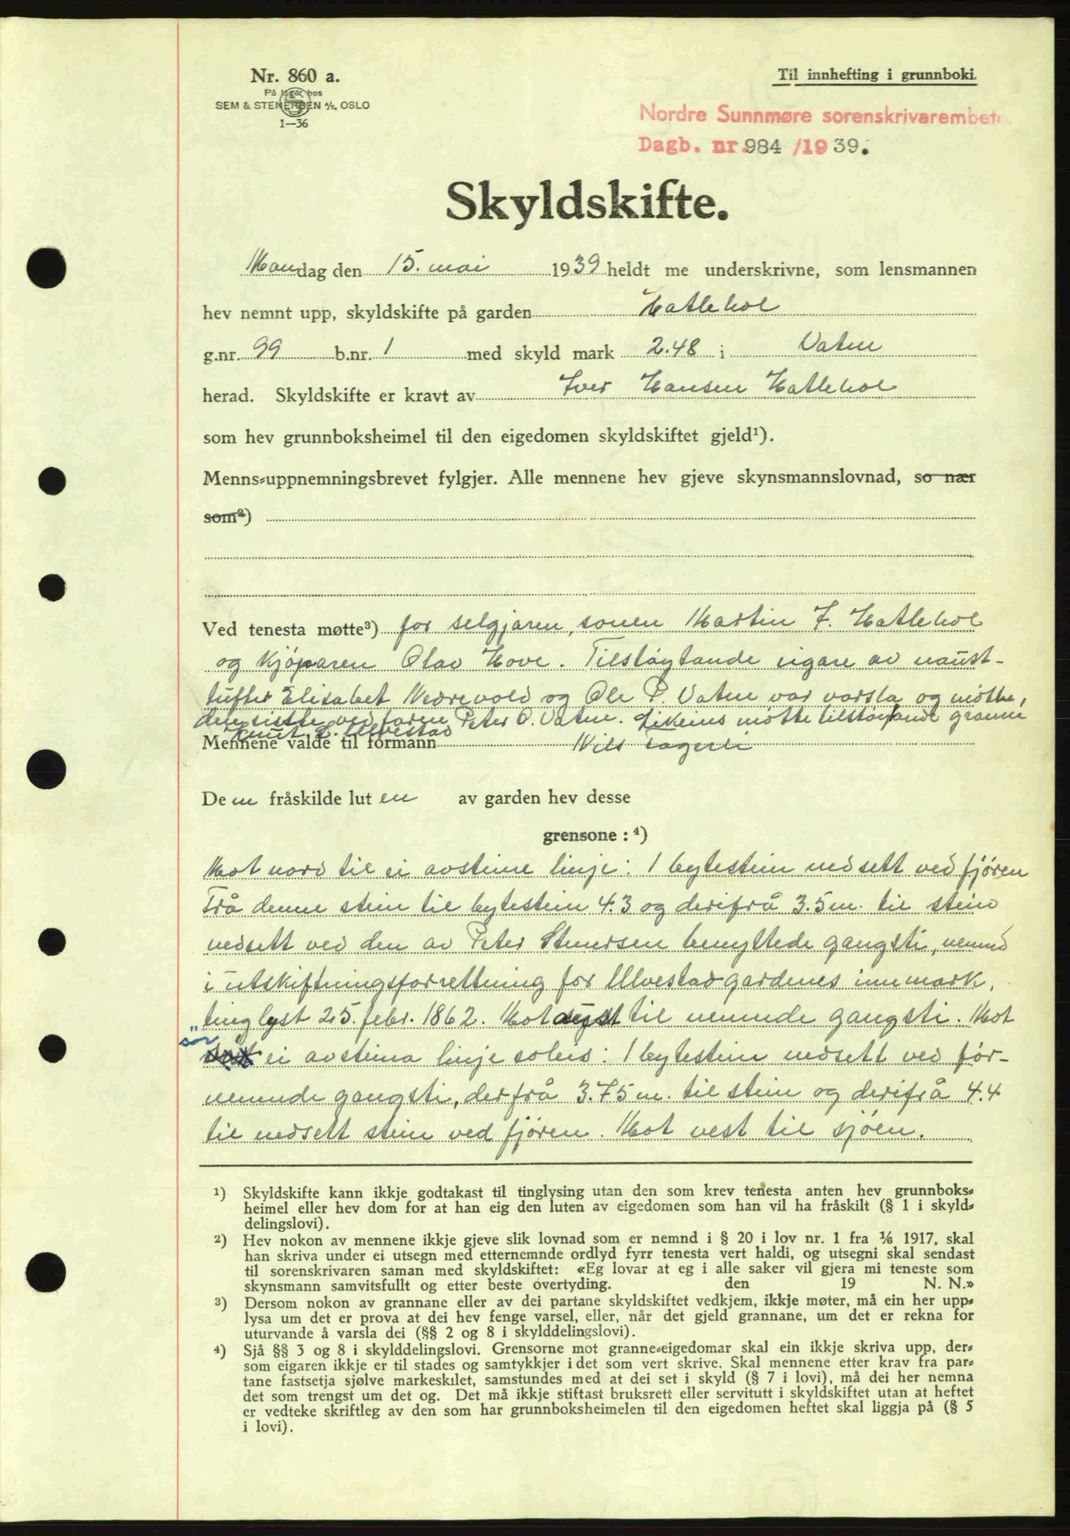 Nr. 860 a.
På lager hos
SEM & STENERSEN A/S, OSLO
1—36
Til innhefting i grunnboki.
Nordre Sunnmøre sorenskrivarembete
Dagb. nr. 984 /19 39.
Skyldskifte.
Mandag den 15. mai 1939 heldt me underskrivne, som lensmannen
hev nemnt upp, skyldskifte på garden Hatlehol
g.nr. 99 b.nr. 1 med skyld mark 2.48 i Vatne
herad. Skyldskifte er kravt av Iver Hansen Hatlehol
som hev grunnboksheimel til den eigedomen skyldskiftet gjeld¹).
Menns-uppnemningsbrevet fylgjer. Alle mennene hev gjeve skynsmannslovnad, so nær
som²)
Ved tenesta møtte³) for selgjaren, sonen Martin I. Hatlehol
og kjøparen Olav Hove. Tilstøytande eigare av naust-
tufter Elisabet Nedrevold og Ole P. Vatne var varsla og møtte,
den siste ved faren Peter O. Vatne. Likeins møtte tilstøytande granne
Knut L. Ulvestad
Mennene valde til formann Nils Fagerli
Den fråskilde lut en av garden hev desse
grensone : ⁴)
Mot nord til ei avsteine linje: 1 bytestein nedsett ved fjøren
Frå denne stein til bytestein 4.3 og derifrå 3.5 m. til stein
nedsett ved den av Peter Stenersen benyttede gangsti, nemnd
i utskiftningsforrettning for Ulvestadgardenes innmark,
tinglyst 25. febr. 1862. Mot aust til nemnde gangsti. Mot
"sør" ei avsteina linje soleis: 1 bytestein nedsett ved før-
nemnde gangsti, derfrå 3.75 m. til stein og derifrå 4.4
til nedsett stein ved fjøren. Mot vest til sjøen.
¹) Skyldskifte kann ikkje godtakast til tinglysing utan den som krev tenesta anten hev grunnboks-
heimel eller hev dom for at han eig den luten av eigedomen som han vil ha fråskilt (§ 1 i skyld-
delingslovi).
²) Hev nokon av mennene ikkje gjeve slik lovnad som er nemnd i § 20 i lov nr. 1 fra 1/6 1917, skal
han skriva under ei utsegn med etternemnde ordlyd fyrr tenesta vert haldi, og utsegni skal sendast
til sorenskrivaren saman med skyldskiftet: «Eg lovar at eg i alle saker vil gjera mi teneste som
skynsmann samvitsfullt og etter beste overtyding. den 19 N. N.»
³) Dersom nokon av grannane eller av dei partane skyldskiftet vedkjem, ikkje møter, må ein her upp-
lysa um det er prova at dei hev fenge varsel, eller, når det gjeld grannane, um det er rekna for
uturvande å varsla dei (§§ 2 og 8 i skylddelingslovi).
⁴) Sjå §§ 3 og 8 i skylddelingslovi. Grensorne mot granne-eigedomar skal ein ikkje skriva upp, der-
som eigaren ikkje er til stades og samtykkjer i det som vert skrive. Skal mennene etter krav fra par-
tane fastsetja sjølve markeskilet, samstundes med at dei set i skyld (§ 7 i lovi), må dei her nemna
det som trengst um det og. Det må ikkje stiftast bruksrett eller servitutt i skyldskiftet utan at heftet
er vedteke skriftleg av den som har grunnboksheimelen til den eigedomen heftet skal liggja på (§ 5
i lovi).